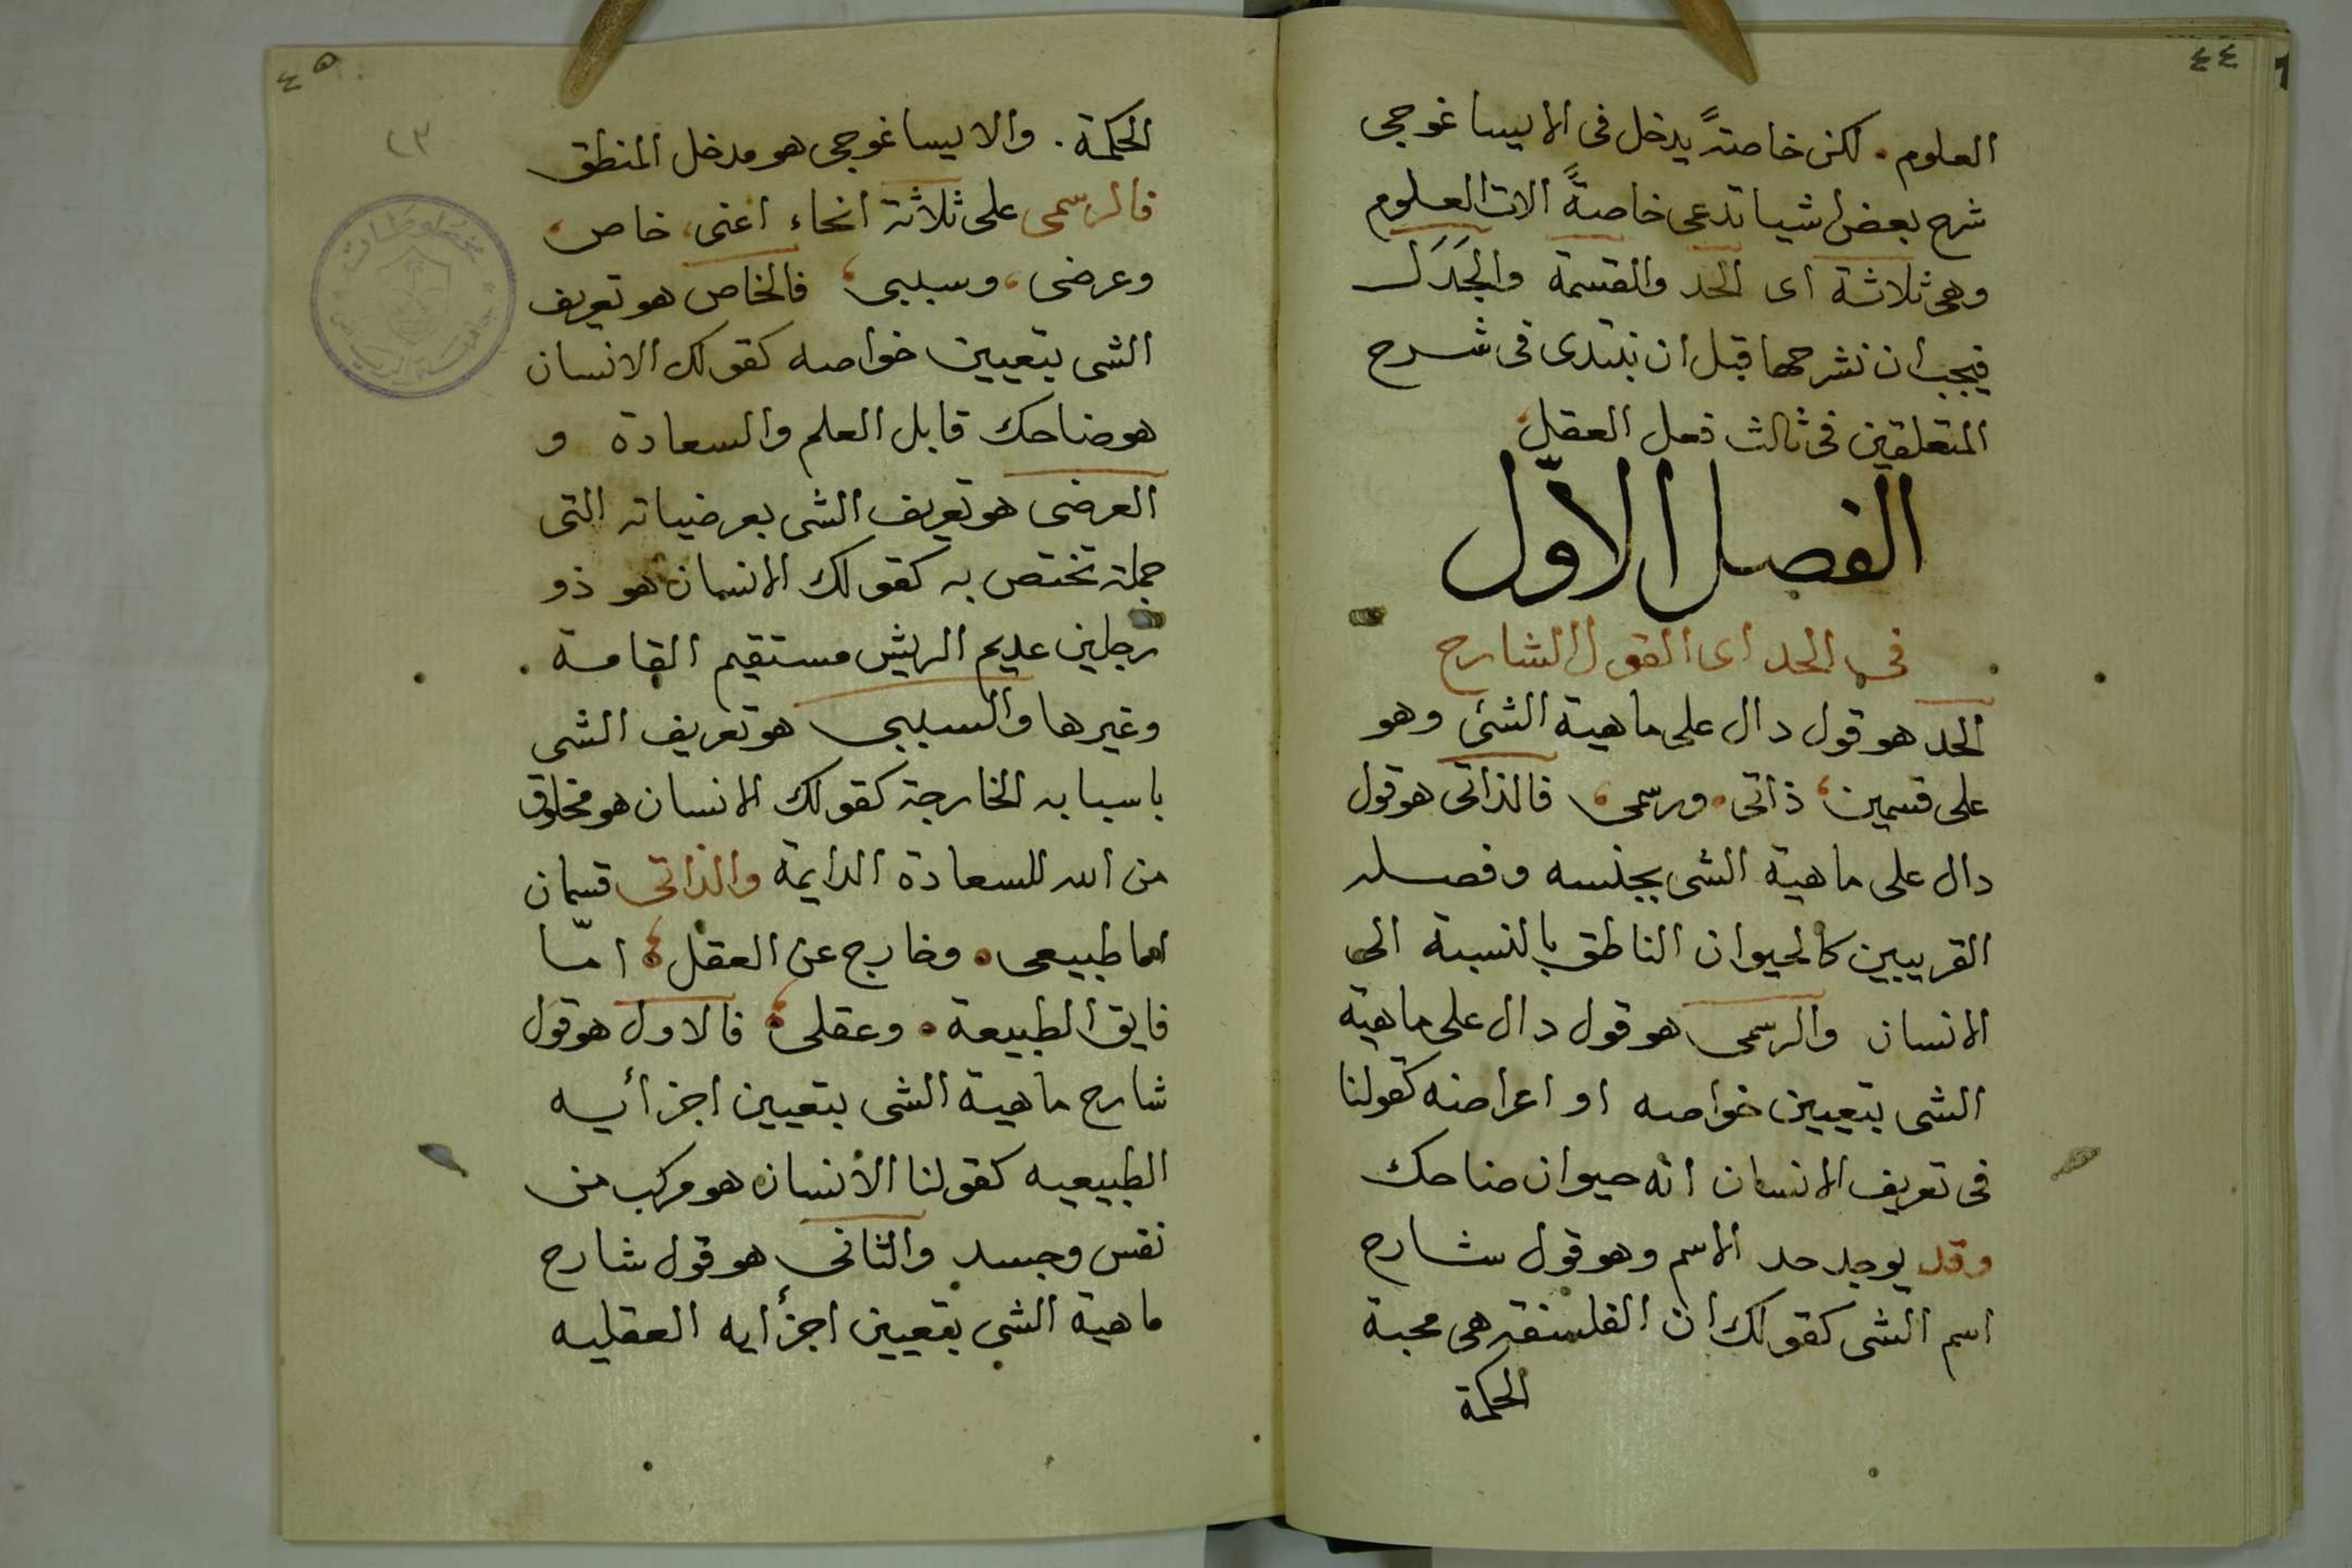 ٤٤
العلوم. لكن خاصةً يدخل فى الايساغوجى
شرح بعض اشيا تدعى خاصةً الات العلوم
وهى ثلاثة اى الحد والقسمة والجَدَل
فيجب ان نشرحها قبل ان نبتدى فى شرح
المتعلقين فى ثالث فعل العقل
الفصل الاوّل
فى الحد اى القول الشارح
الحد هو قول دال على ماهية الشئ وهو
على قسمين، ذاتى. ورسمى، فالذاتى هو قول
دال على ماهية الشى بجنسه وفصله
القريبين كالحيوان الناطق بالنسبة الى
الانسان والرسمى هو قول دال على ماهية
الشى بتعيين خواصه او اعراضه كقولنا
فى تعريف الانسان انه حيوان ضاحك
وقد يوجد حد الاسم وهو قول شارح
اسم الشى كقولك ان الفلسفة هى محبة
الحكمة
٤٥
٢٣
الحكمة. والايساغوجى هو مدخل المنطق
فالرسمى على ثلاثة انحاء اعنى، خاص،
وعرضى، وسببى، فالخاص هو تعريف
الشى بتعيين خواصه كقولك الانسان
هو ضاحك قابل العلم والسعادة و
العرضى هو تعريف الشى بعرضياته التى
جملة تختص به كقولك الانسان هو ذو
رجلين عديم الريش مستقيم القامة.
وغيرها والسببى هو تعريف الشى
باسبابه الخارجة كقولك الانسان هو مخلوق
من الله للسعادة الدايمة والذاتى قسمان
اما طبيعى. وخارج عن العقل، امّا
فايق الطبيعة. وعقلى، فالاول هو قول
شارح ماهية الشى بتعيين اجزأيه
الطبيعيه كقولنا الأنسان هو مركب من
نفس وجسد والثانى هو قول شارح
ماهية الشى بتعيين اجزأيه العقليه
مخطوطات
جامعة الرياض